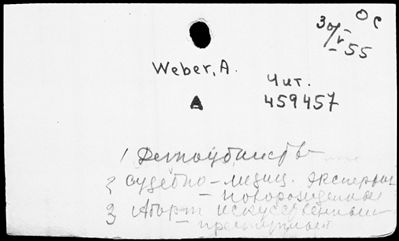 ОС
30/V 55
Weber, A.
Чит.
A
459457
1 Детоубийство
2 Судебно-медиц. экспертиза
- новорожденные
3 Аборт искусственный
- преступный